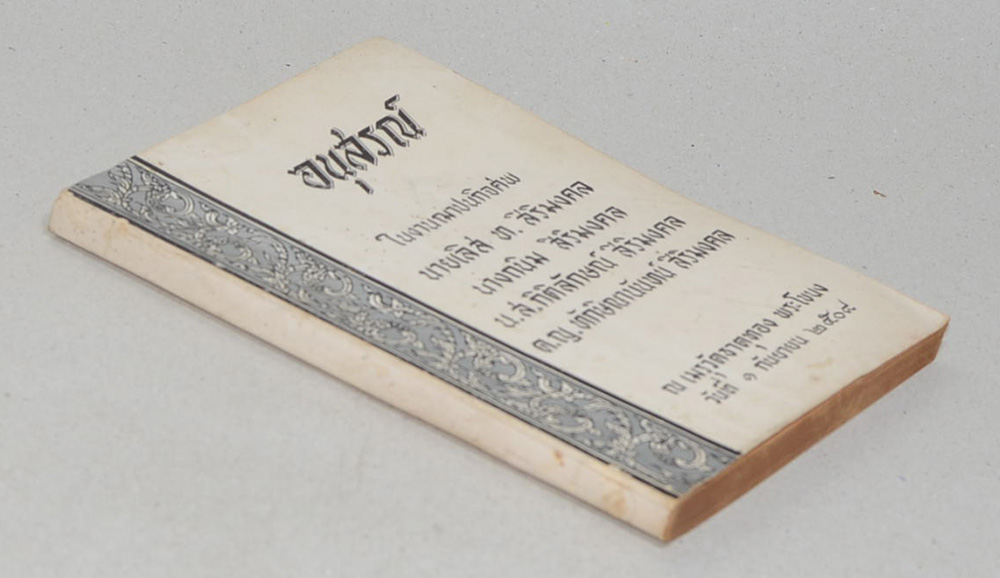 อนุสรณ์
ในงานฌาปนกิจศพ
นายเลิส ท. สิริมงคล
นางถนิม สิริมงคล
น.ส.กิติลักษณ์ สิริมงคล
ด.ญ.ทักษิณกันแตน์ สิริมงคล
ณ เมรุวัดธาตุทอง พระโขนง
วันที่ ๑ กันยายน ๒๕๐๙